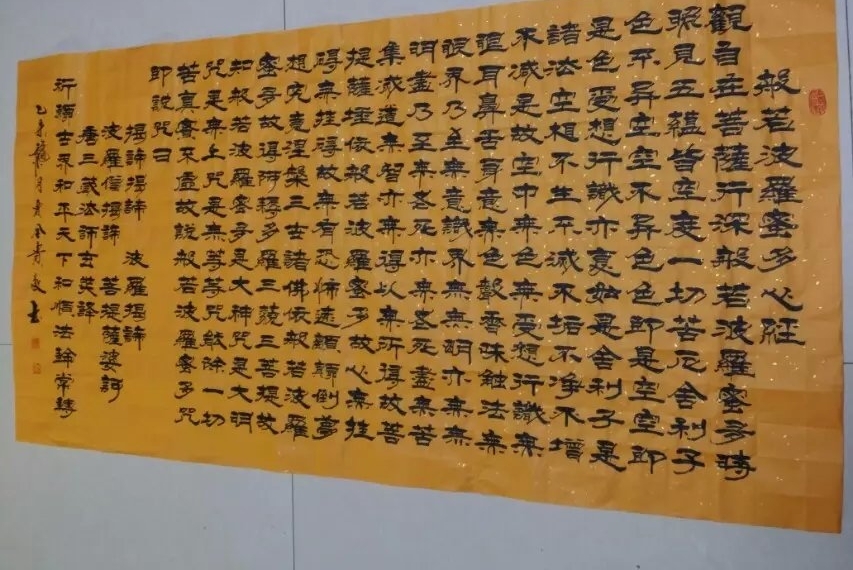 般若波羅蜜多心經
觀自在菩薩行深般若波羅蜜多時
照見五蘊皆空度一切苦厄舍利子
色不異空空不異色色即是空空即
是色受想行識亦復如是舍利子是
諸法空相不生不滅不垢不净不增
不减是故空中無色無受想行識無
眼耳鼻舌身意無色聲香味觸法無
眼界乃至無意識界無無明亦無無
明盡乃至無老死亦無老死盡無苦
集滅道無智亦無得以無所得故菩
提薩埵依般若波羅蜜多故心無挂
礙無挂礙故無有恐怖遠離顛倒夢
想究竟涅槃三世諸佛依般若波羅
蜜多故得阿耨多羅三藐三菩提故
知般若波羅蜜多是大神咒是大明
咒是無上咒是無等等咒能除一切
苦真實不虛故說般若波羅蜜多咒
即說咒曰
揭諦揭諦 波羅揭諦
波羅僧揭諦 菩提薩婆訶
唐三藏法師玄奘譯
祈願世界和平天下和順法輪常轉
乙未龍月